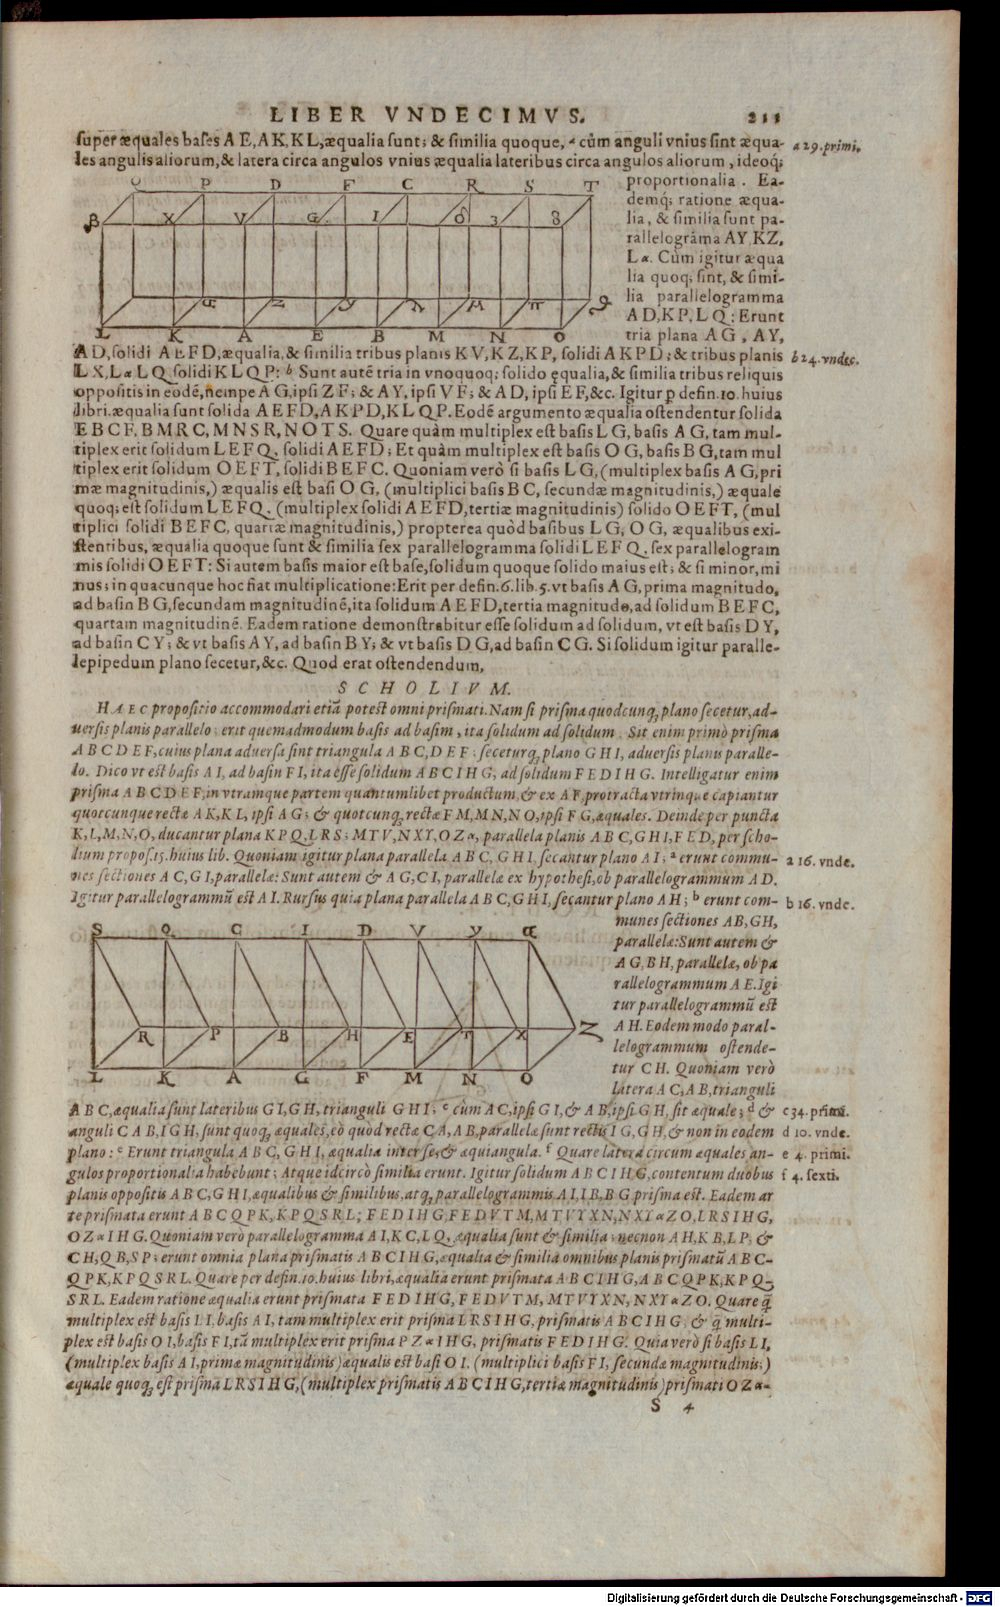 LIBER VNDECIMVS. 211
super æquales bases A E, A K, K L, æqualia sunt; & similia quoque, a cùm anguli vnius sint æqua-
les angulis aliorum, & latera circa angulos vnius æqualia lateribus circa angulos aliorum, ideoq́;
a 29. primi.
proportionalia. Ea-
demq́; ratione æqua-
lia, & similia sunt pa-
rallelogrāma AY, KZ,
L α. Cùm igitur æqua
lia quoq; sint, & simi-
lia parallelogramma
A D, K P, L Q; Erunt
tria plana A G, AY,
Q P D F C R S T
β X V G I δ 3 8
α Z Y
L K A E B M N O
A D, solidi A E F D, æqualia, & similia tribus planis K V, K Z, K P, solidi A K P D; & tribus planis
L X, L α L Q solidi K L Q P: b Sunt autē tria in vnoquoq; solido ęqualia, & similia tribus reliquis
b 24. vndec.
oppositis in eodē, nempe A G, ipsi Z F; & AY, ipsi V F; & A D, ipsi E F, &c. Igitur p defin. 10. huius
libri. æqualia sunt solida A E F D, A K P D, K L Q P. Eodē argumento æqualia ostendentur solida
E B C F, B M R C, M N S R, N O T S. Quare quàm multiplex est basis L G, basis A G, tam mul-
tiplex erit solidum L E F Q, solidi A E F D; Et quàm multiplex est basis O G, basis B G, tam mul
tiplex erit solidum O E F T, solidi B E F C. Quoniam verò si basis L G, (multiplex basis A G, pri
mæ magnitudinis,) æqualis est basi O G, (multiplici basis B C, secundæ magnitudinis,) æquale
quoq; est solidum L E F Q, (multiplex solidi A E F D, tertiæ magnitudinis) solido O E F T, (mul
tiplici solidi B E F C, quartæ magnitudinis,) propterea quòd basibus L G, O G, æqualibus exi-
stentibus, æqualia quoque sunt & similia sex parallelogramma solidi L E F Q, sex parallelogram
mis solidi O E F T: Si autem basis maior est base, solidum quoque solido maius est; & si minor, mi
nus; in quacunque hoc fiat multiplicatione: Erit per defin. 6. lib. 5. vt basis A G, prima magnitudo,
ad basin B G, secundam magnitudinē, ita solidum A E F D, tertia magnitudo, ad solidum B E F C,
quartam magnitudinē. Eadem ratione demonstrabitur esse solidum ad solidum, vt est basis D Y,
ad basin C Y; & vt basis A Y, ad basin B Y; & vt basis D G, ad basin C G. Si solidum igitur paralle-
lepipedum plano secetur, &c. Quod erat ostendendum.
SCHOLIVM.
HAEC propositio accommodari etiā potest omni prismati. Nam si prisma quodcunq; plano secetur, ad-
uersis planis parallelo; erit quemadmodum basis ad basim, ita solidum ad solidum. Sit enim primò prisma
A B C D E F, cuius plana aduersa sint triangula A B C, D E F; seceturq́; plano G H I, aduersis planis paralle-
lo. Dico vt est basis A I, ad basin F I, ita esse solidum A B C I H G, ad solidum F E D I H G. Intelligatur enim
prisma A B C D E F, in vtramque partem quantumlibet productum, & ex A F, protracta vtrinque capiantur
quotcunque rectæ A K, K L, ipsi A G; & quotcunq; rectæ F M, M N, N O, ipsi F G, æquales. Deinde per puncta
K, L, M, N, O, ducantur plana K P Q, L R S; M T V, N X Y, O Z α, parallela planis A B C, G H I, F E D, per scho-
lium propos. 15. huius lib. Quoniam igitur plana parallela A B C, G H I, secantur plano A I; a erunt commu-
a 16. vnde.
nes sectiones A C, G I, parallelæ: Sunt autem & A G, C I, parallelæ ex hypothesi, ob parallelogrammum A D.
Igitur parallelogrammū est A I. Rursus quia plana parallela A B C, G H I, secantur plano A H; b erunt com-
b 16. vnde.
munes sectiones AB, GH,
parallelæ: Sunt autem &
A G, B H, parallelæ, ob pa
rallelogrammum A E. Igi
tur parallelogrammū est
A H. Eodem modo paral-
lelogrammum ostende-
tur C H. Quoniam verò
latera A C, A B, trianguli
S Q C I D V Y α
R P B H E T X Z
L K A G F M N O
A B C, æqualia sunt lateribus G I, G H, trianguli G H I; c cùm A C, ipsi G I, & A B, ipsi G H, sit æquale; d &
c 34. primi.
anguli C A B, I G H, sunt quoq; æquales, eò quòd rectæ C A, A B, parallelæ sunt rectis I G, G H, & non in eodem
d 10. vnde.
plano: e Erunt triangula A B C, G H I, æqualia inter se, & æquiangula. f Quare latera circum æquales an-
e 4. primi.
gulos proportionalia habebunt; Atque idcircò similia erunt. Igitur solidum A B C I H G, contentum duobus
f 4. sexti.
planis oppositis A B C, G H I, æqualibus & similibus, atq; parallelogrammis A I, I B, B G prisma est. Eadem ar
te prismata erunt A B C Q P K, K P Q S R L; F E D I H G, F E D V T M, M T V Y X N, N X Y α Z O, L R S I H G,
O Z α I H G. Quoniam verò parallelogramma A I, K C, L Q, æqualia sunt & similia; necnon A H, K B, L P; &
C H, Q B, S P; erunt omnia plana prismatis A B C I H G, æqualia & similia omnibus planis prismatū A B C-
Q P K, K P Q S R L. Quare per defin. 10. huius libri, æqualia erunt prismata A B C I H G, A B C Q P K, K P Q-
S R L. Eadem ratione æqualia erunt prismata F E D I H G, F E D V T M, M T V Y X N, N X Y α Z O. Quare q̄
multiplex est basis L I, basis A I, tam multiplex erit prisma L R S I H G, prismatis A B C I H G; & q̄ multi-
plex est basis O I, basis F I, tā multiplex erit prisma P Z α I H G, prismatis F E D I H G. Quia verò si basis L I,
(multiplex basis A I, primæ magnitudinis) æqualis est basi O I, (multiplici basis F I, secundæ magnitudinis;)
æquale quoq; est prisma L R S I H G, (multiplex prismatis A B C I H G, tertiæ magnitudinis) prismati O Z α-
S 4
Digitalisierung gefördert durch die Deutsche Forschungsgemeinschaft - DFG